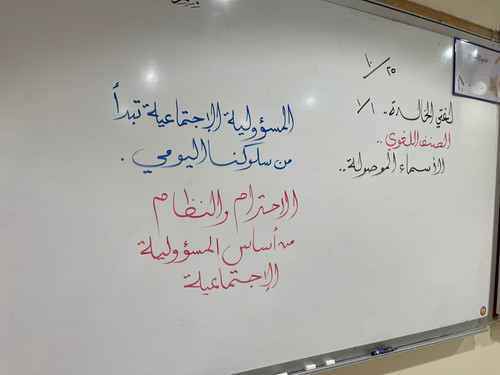 ١٠/٢٥
لغتي الخالدة.. ١/٨
الصنف اللغوي..
الأسماء الموصولة..
المسؤولية الإجتماعية تبدأ
من سلوكنا اليومي.
الاحترام والنظام
من أساس المسؤولية
الإجتماعية